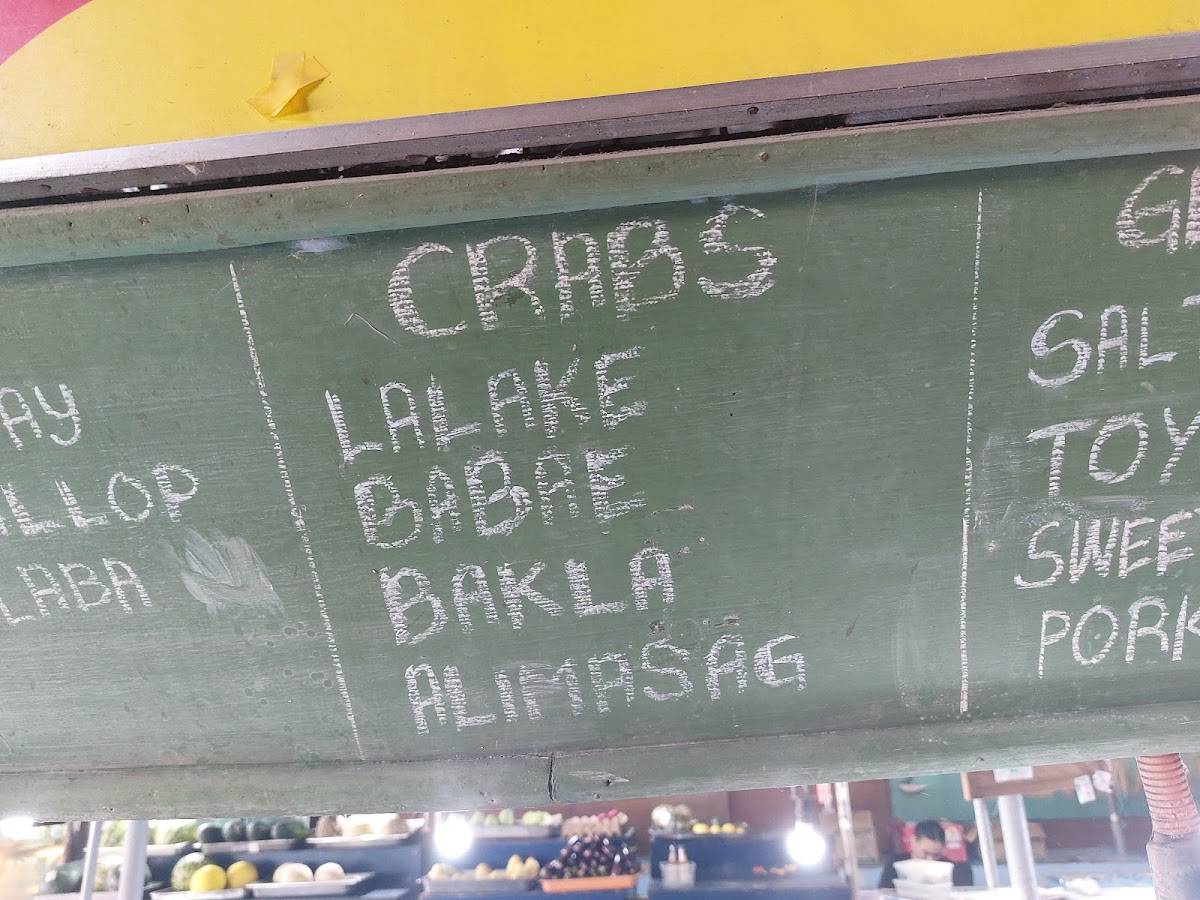 AY
LLOP
LABA
CRABS
LALAKE
BABAE
BAKLA
ALIMASAG
SALT
TOY
SWEE
PORK